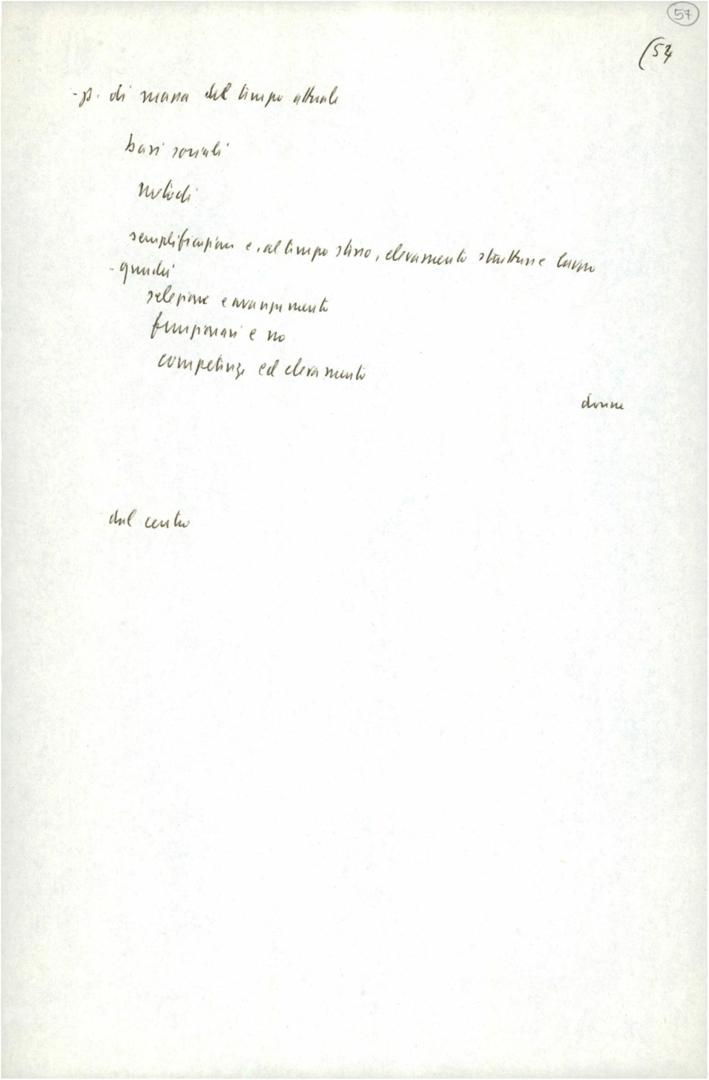 57
(54
- p. di massa del tempo attuale
basi sociali
metodi
semplificazione e, al tempo stesso, elevamento strutture e lavoro
- quadri
selezione e avanzamento
funzionari e no
competenze ed elevamento
donne
dal centro